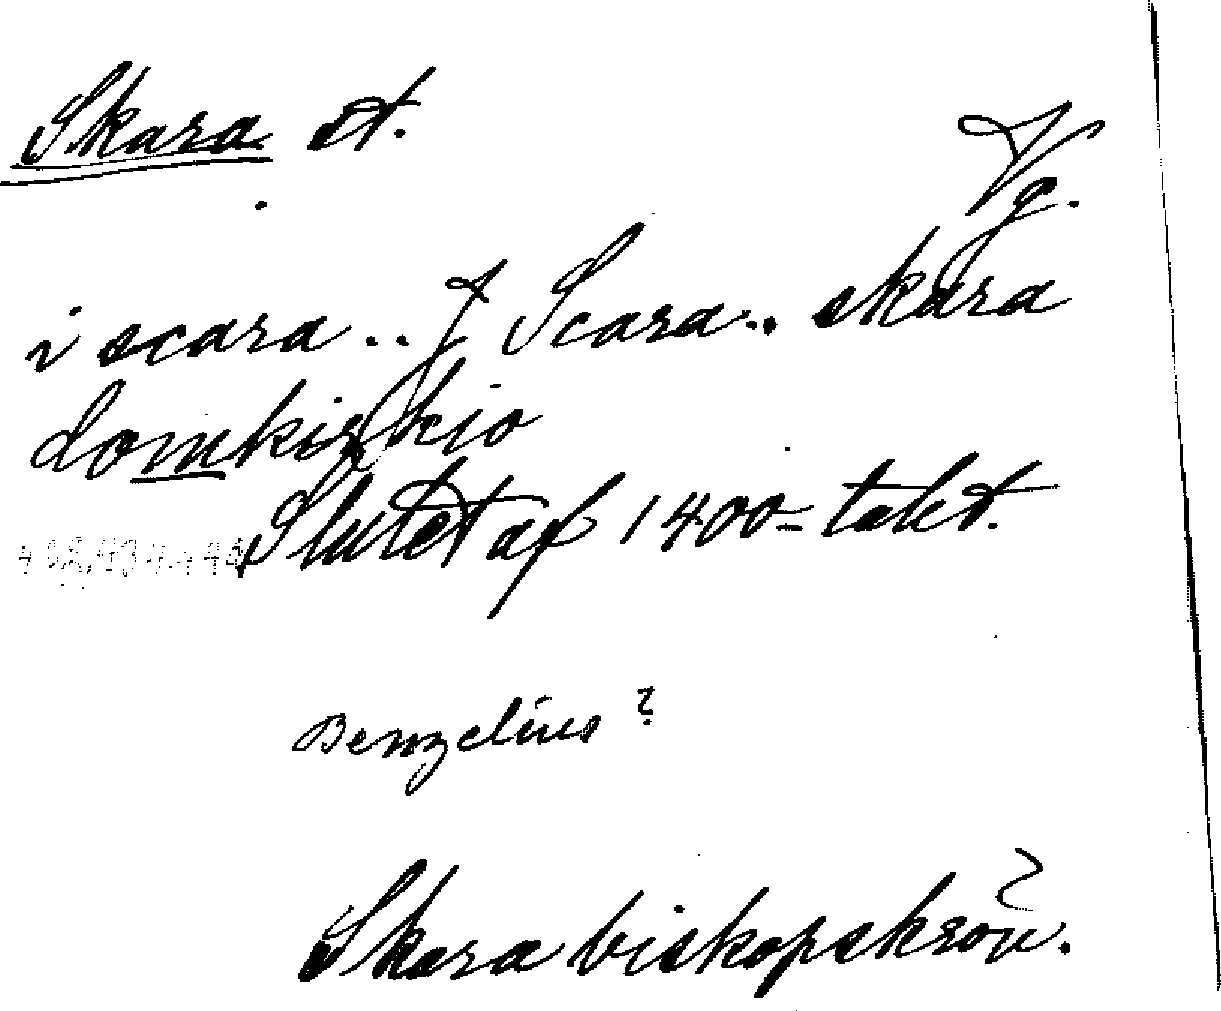 Skara st.
Vg.
i scara .. J Scara .. skara
domkirkio
Slutet af 1400-talet.
Benzelius?
Skara biskopskrön.